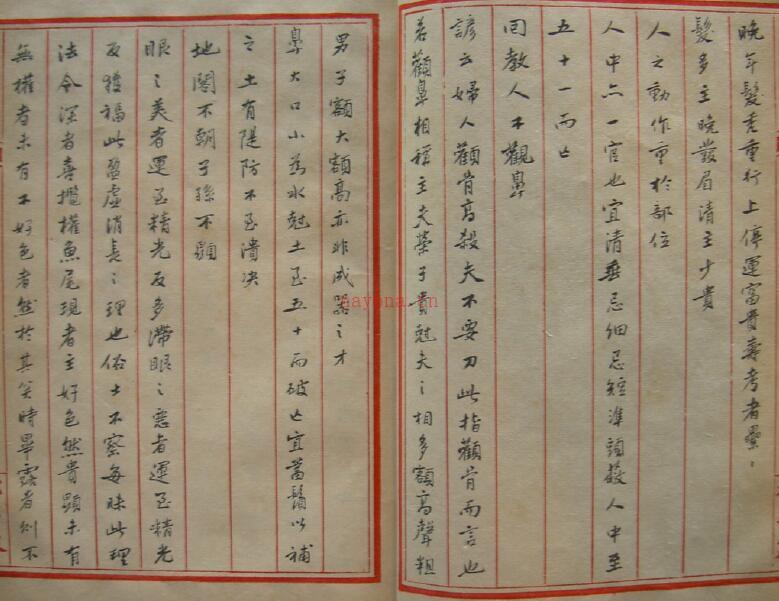 晚年髮禿重行上停運富貴壽考者纍〻
髮多主晚發眉清主少貴
人之動作重於部位
人中亦一官也宜清垂忌細忌短準頭破人中至
五十一而亡
回教人不觀鼻
諺云婦人顴骨高殺夫不要刀此指顴骨而言也
若顴鼻相稱主夫榮子貴尅夫之相多額高聲粗
男子額大額高亦非成器之才
鼻大口小為水尅土至五十而破亡宜蓄鬚以補
之土有隄防不至潰决
地閣不朝子孫不顯
眼之美者運至精光反多滯眼之惡者運至精光
反獲福此盈虛消長之理也俗士不察每昧此理
法令深者喜攬權魚尾現者主好色然貴顯未有
無權者未有不好色者然於其笑時畢露者則不
nayona.cn